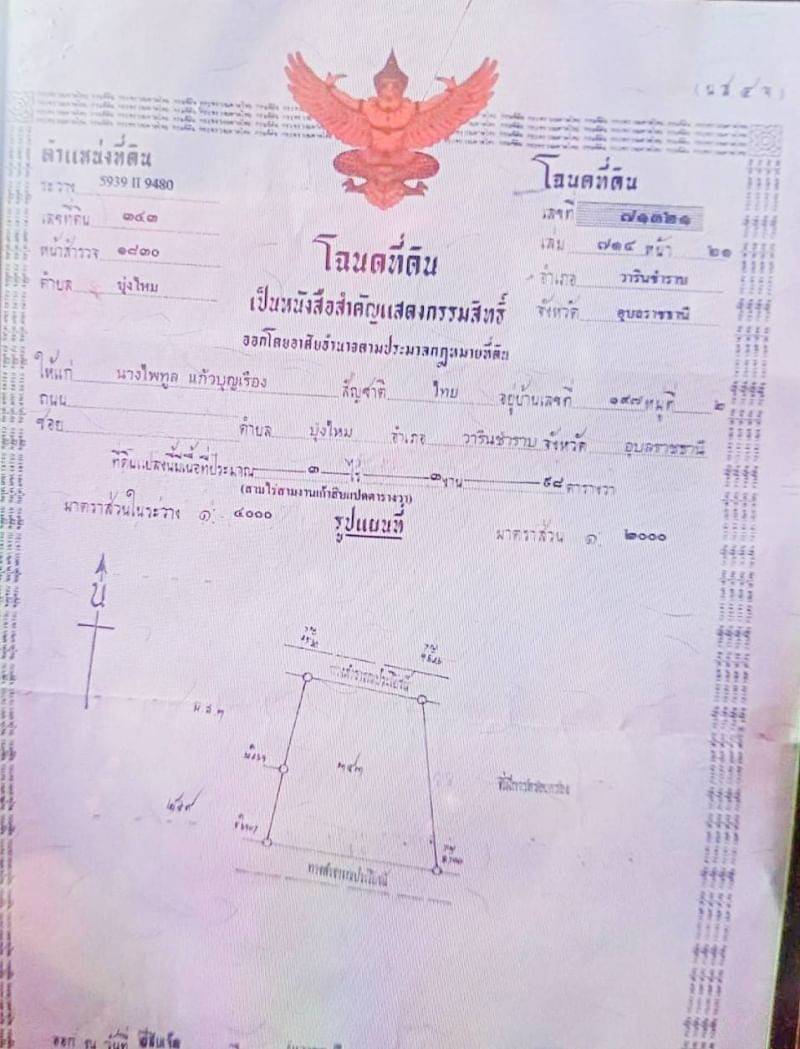 (น ส ๔ จ)
ตำแหน่งที่ดิน
ระวาง 5939 II 9480
เลขที่ดิน ๓๔๓
หน้าสำรวจ ๑๘๓๐
ตำบล บุ่งไหม
โฉนดที่ดิน
เลขที่ ๗๑๓๒๑
เล่ม ๗๑๔ หน้า ๒๑
อำเภอ วารินชำราบ
จังหวัด อุบลราชธานี
โฉนดที่ดิน
เป็นหนังสือสำคัญแสดงกรรมสิทธิ์
ออกโดยอาศัยอำนาจตามประมวลกฎหมายที่ดิน
ให้แก่ นางไพทูล แก้วบุญเรือง สัญชาติ ไทย อยู่บ้านเลขที่ ๑๙๗ หมู่ที่ ๒
ถนน
ซอย ตำบล บุ่งไหม อำเภอ วารินชำราบ จังหวัด อุบลราชธานี
ที่ดินแปลงนี้มีเนื้อที่ประมาณ ๓ ไร่ ๓ งาน ๙๘ ตารางวา
(สามไร่สามงานเก้าสิบแปดตารางวา)
มาตราส่วนในระวาง ๑: ๔๐๐๐ รูปแผนที่ มาตราส่วน ๑: ๒๐๐๐
น
ทางสาธารณประโยชน์
๓๔๓
ทางสาธารณประโยชน์
ออก ณ วันที่ ยี่สิบเจ็ด